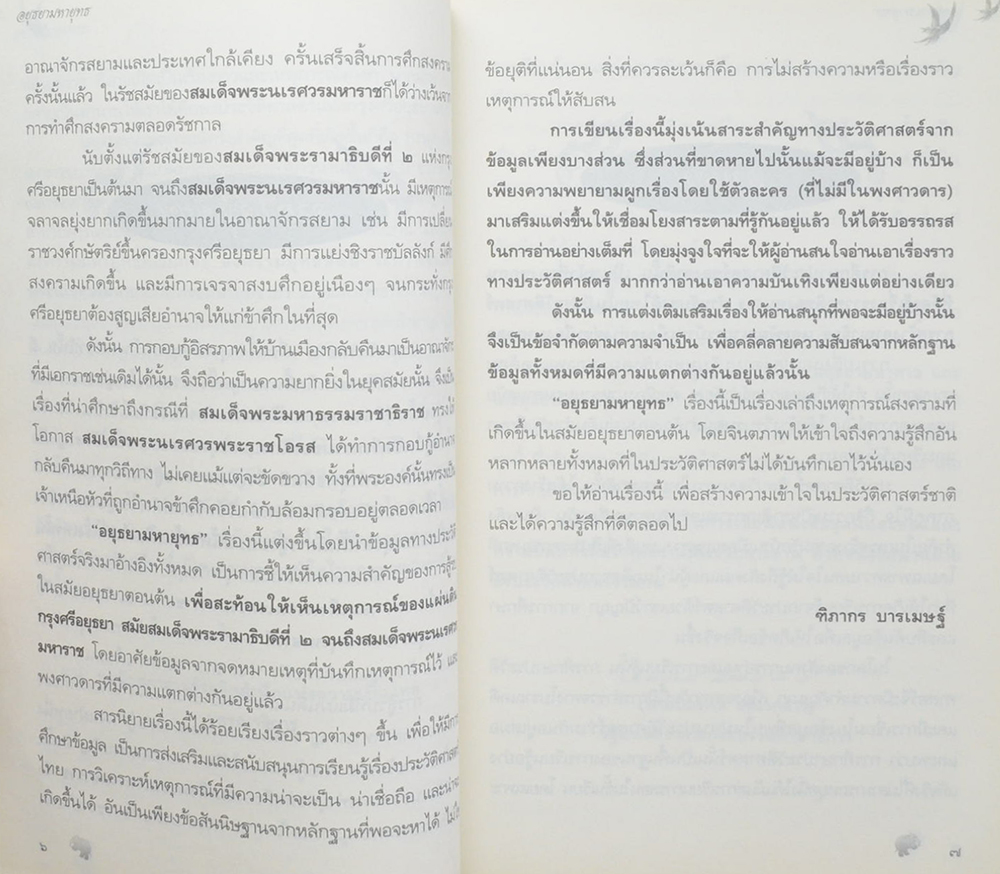 อยุธยามหายุทธ
อาณาจักรสยามและประเทศใกล้เคียง ครั้นเสร็จสิ้นการศึกสงคราม
ครั้งนั้นแล้ว ในรัชสมัยของสมเด็จพระนเรศวรมหาราชก็ได้ว่างเว้นจาก
การทำศึกสงครามตลอดรัชกาล
นับตั้งแต่รัชสมัยของสมเด็จพระรามาธิบดีที่ ๒ แห่งกรุง
ศรีอยุธยาเป็นต้นมา จนถึงสมเด็จพระนเรศวรมหาราชนั้น มีเหตุการณ์
จลาจลยุ่งยากเกิดขึ้นมากมายในอาณาจักรสยาม เช่น มีการเปลี่ยน
ราชวงศ์กษัตริย์ขึ้นครองกรุงศรีอยุธยา มีการแย่งชิงราชบัลลังก์ มีศึก
สงครามเกิดขึ้น และมีการเจรจาสงบศึกอยู่เนืองๆ จนกระทั่งกรุง
ศรีอยุธยาต้องสูญเสียอำนาจให้แก่ข้าศึกในที่สุด
ดังนั้น การกอบกู้อิสรภาพให้บ้านเมืองกลับคืนมาเป็นอาณาจักร
ที่มีเอกราชเช่นเดิมได้นั้น จึงถือว่าเป็นความยากยิ่งในยุคสมัยนั้น จึงเป็น
เรื่องที่น่าศึกษาถึงกรณีที่ สมเด็จพระมหาธรรมราชาธิราช ทรงให้
โอกาส สมเด็จพระนเรศวรพระราชโอรส ได้ทำการกอบกู้อำนาจ
กลับคืนมาทุกวิถีทาง ไม่เคยแม้แต่จะขัดขวาง ทั้งที่พระองค์นั้นทรงเป็น
เจ้าเหนือหัวที่ถูกอำนาจข้าศึกคอยกำกับล้อมกรอบอยู่ตลอดเวลา
“อยุธยามหายุทธ” เรื่องนี้แต่งขึ้นโดยนำข้อมูลทางประวัติ
ศาสตร์จริงมาอ้างอิงทั้งหมด เป็นการชี้ให้เห็นความสำคัญของการสู้รบ
ในสมัยอยุธยาตอนต้น เพื่อสะท้อนให้เห็นเหตุการณ์ของแผ่นดิน
กรุงศรีอยุธยา สมัยสมเด็จพระรามาธิบดีที่ ๒ จนถึงสมเด็จพระนเรศวร
มหาราช โดยอาศัยข้อมูลจากจดหมายเหตุที่บันทึกเหตุการณ์ไว้ และ
พงศาวดารที่มีความแตกต่างกันอยู่แล้ว
สารนิยายเรื่องนี้ได้ร้อยเรียงเรื่องราวต่างๆ ขึ้น เพื่อให้มีการ
ศึกษาข้อมูล เป็นการส่งเสริมและสนับสนุนการเรียนรู้เรื่องประวัติศาสตร์
ไทย การวิเคราะห์เหตุการณ์ที่มีความน่าจะเป็น น่าเชื่อถือ และน่าจะ
เกิดขึ้นได้ อันเป็นเพียงข้อสันนิษฐานจากหลักฐานที่พอจะหาได้ ไม่ใช่
๖
ข้อยุติที่แน่นอน สิ่งที่ควรละเว้นก็คือ การไม่สร้างความหรือเรื่องราว
เหตุการณ์ให้สับสน
การเขียนเรื่องนี้มุ่งเน้นสาระสำคัญทางประวัติศาสตร์จาก
ข้อมูลเพียงบางส่วน ซึ่งส่วนที่ขาดหายไปนั้นแม้จะมีอยู่บ้าง ก็เป็น
เพียงความพยายามผูกเรื่องโดยใช้ตัวละคร (ที่ไม่มีในพงศาวดาร)
มาเสริมแต่งขึ้นให้เชื่อมโยงสาระตามที่รู้กันอยู่แล้ว ให้ได้รับอรรถรส
ในการอ่านอย่างเต็มที่ โดยมุ่งจูงใจที่จะให้ผู้อ่านสนใจอ่านเอาเรื่องราว
ทางประวัติศาสตร์ มากกว่าอ่านเอาความบันเทิงเพียงแต่อย่างเดียว
ดังนั้น การแต่งเติมเสริมเรื่องให้อ่านสนุกที่พอจะมีอยู่บ้างนั้น
จึงเป็นข้อจำกัดตามความจำเป็น เพื่อคลี่คลายความสับสนจากหลักฐาน
ข้อมูลทั้งหมดที่มีความแตกต่างกันอยู่แล้วนั้น
“อยุธยามหายุทธ” เรื่องนี้เป็นเรื่องเล่าถึงเหตุการณ์สงครามที่
เกิดขึ้นในสมัยอยุธยาตอนต้น โดยจินตภาพให้เข้าใจถึงความรู้สึกอัน
หลากหลายทั้งหมดที่ในประวัติศาสตร์ไม่ได้บันทึกเอาไว้นั่นเอง
ขอให้อ่านเรื่องนี้ เพื่อสร้างความเข้าใจในประวัติศาสตร์ชาติ
และได้ความรู้สึกที่ดีตลอดไป
ฑิภากร บารเมษฐ์
๗